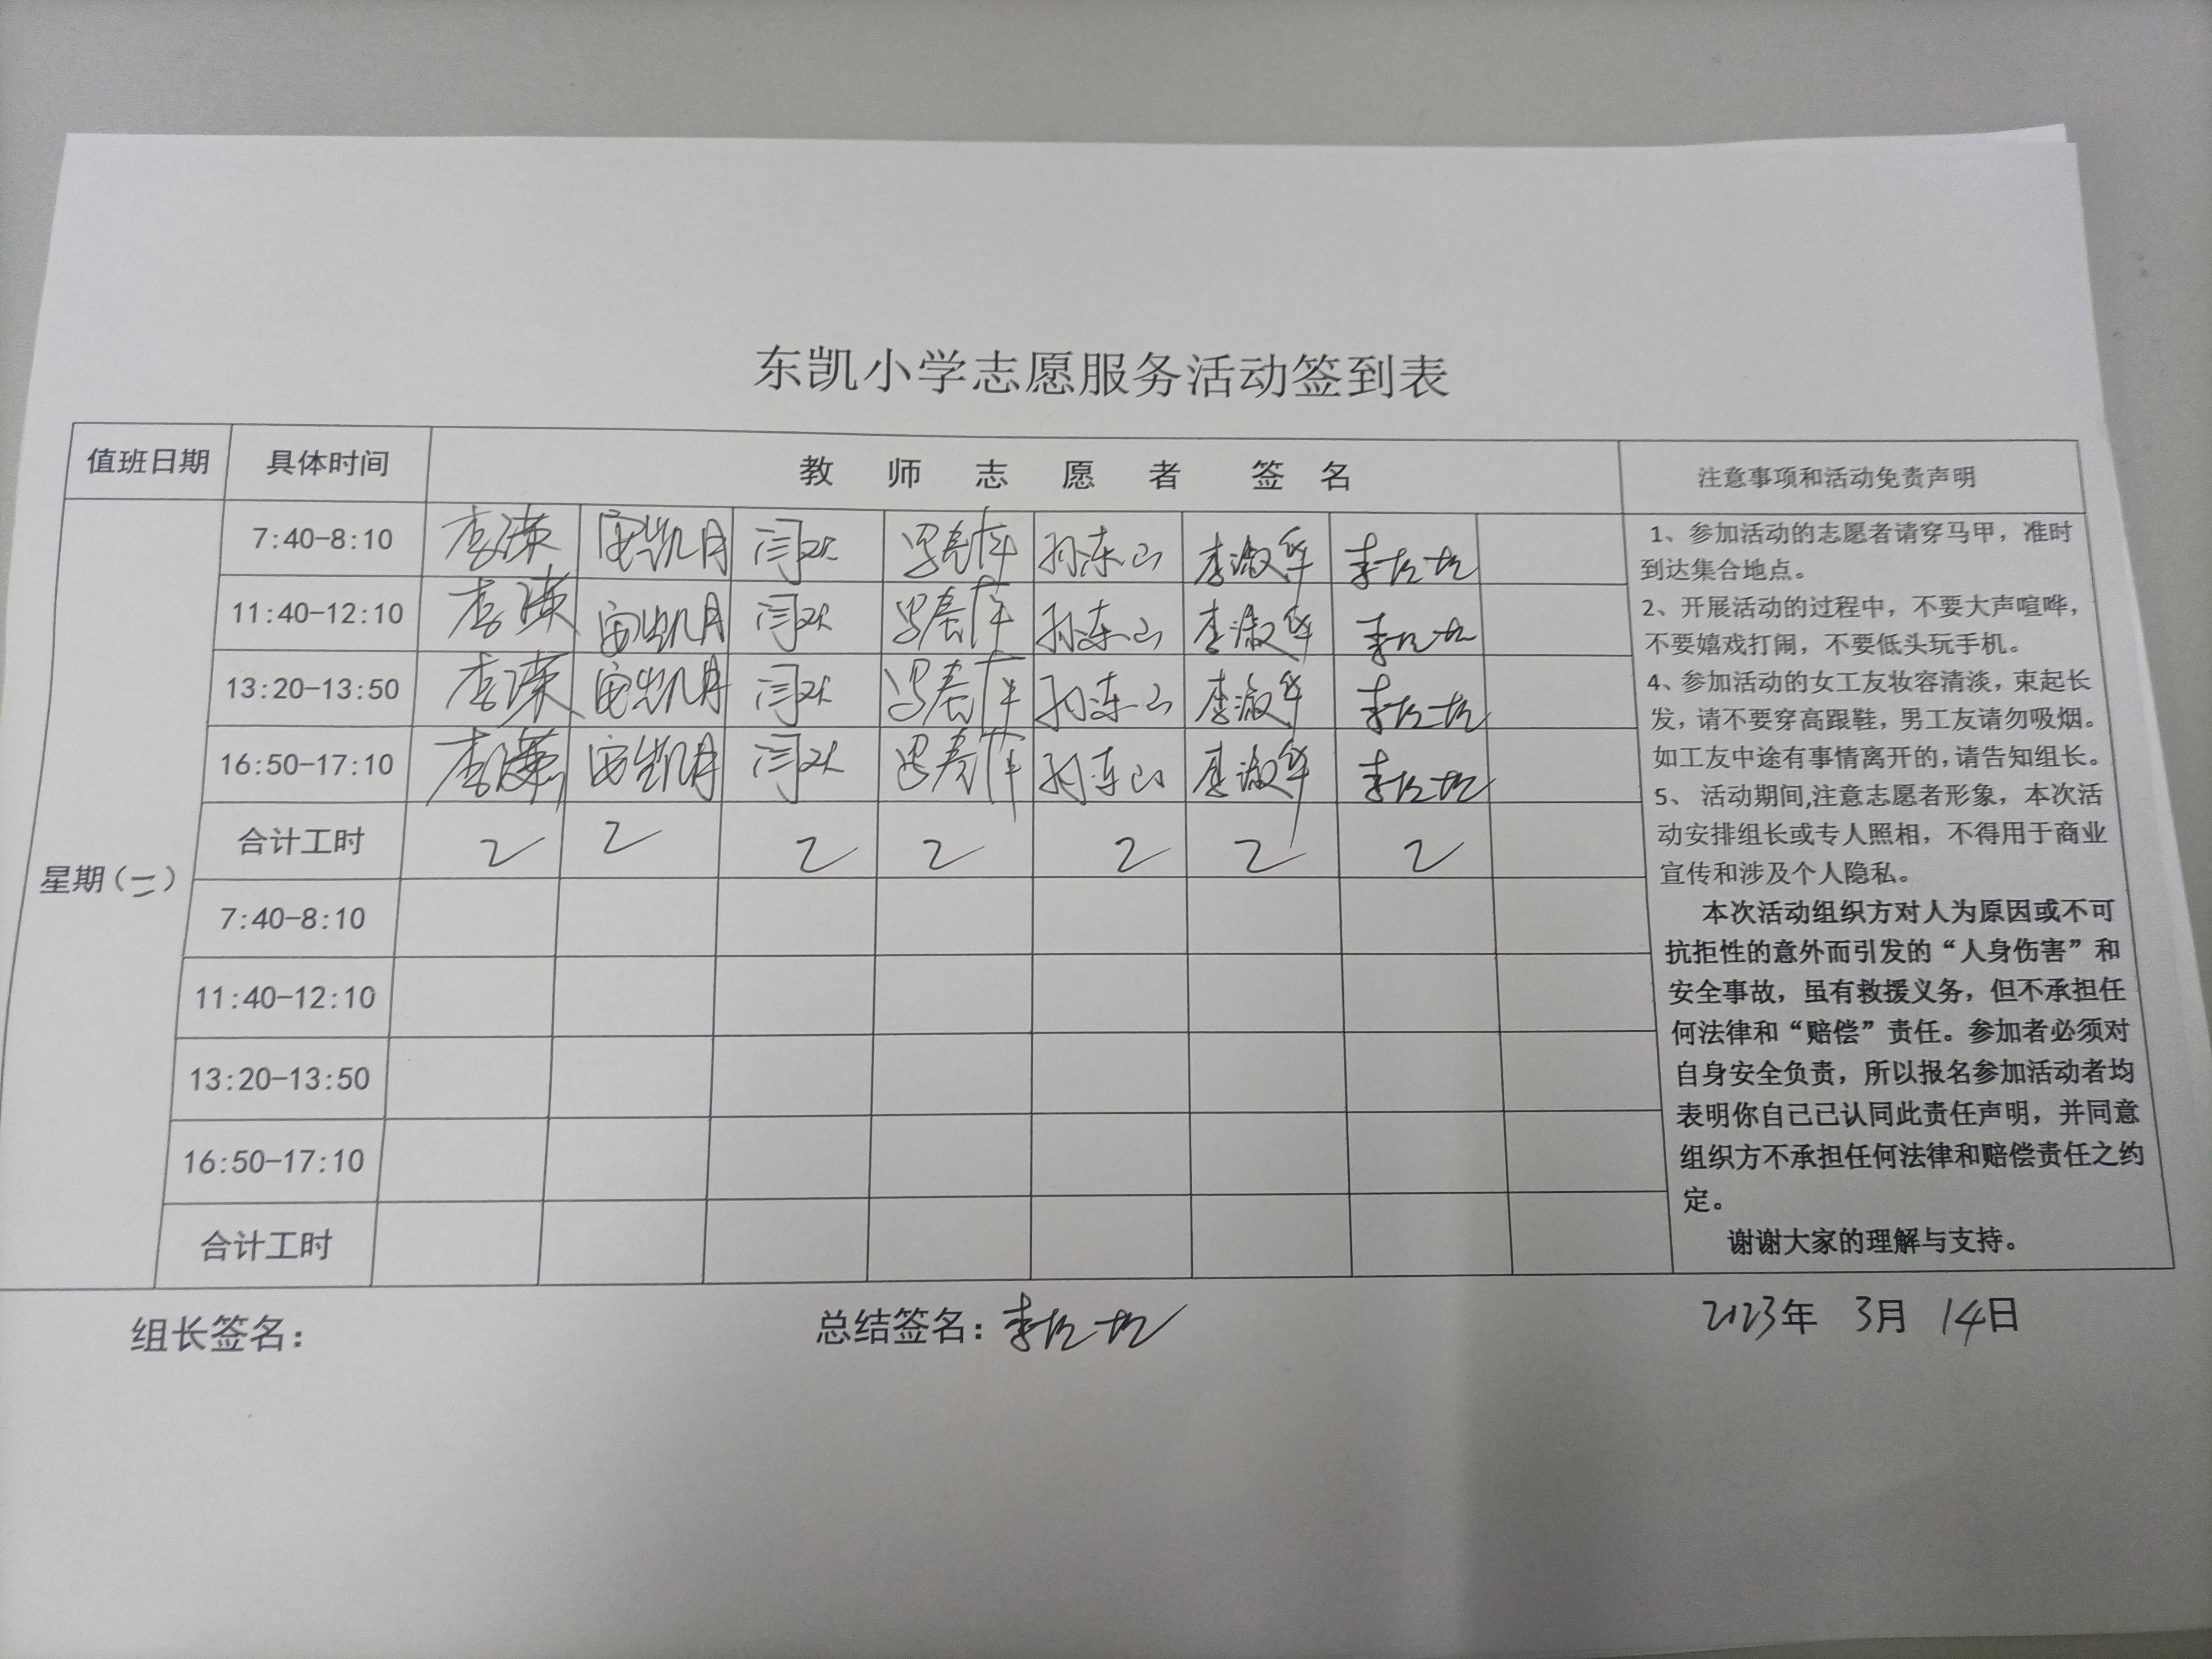 东凯小学志愿服务活动签到表
值班日期 具体时间 教师志愿者签名 注意事项和活动免责声明
星期(二)
7:40-8:10 李瑛 安凯月 闫欢 吕春萍 孙东山 李淑华
11:40-12:10 李瑛 安凯月 闫欢 吕春萍 孙东山 李淑华
13:20-13:50 李瑛 安凯月 闫欢 吕春萍 孙东山 李淑华
16:50-17:10 李瑛 安凯月 闫欢 吕春萍 孙东山 李淑华
合计工时 2 2 2 2 2 2 2
7:40-8:10
11:40-12:10
13:20-13:50
16:50-17:10
合计工时
1、参加活动的志愿者请穿马甲，准时
到达集合地点。
2、开展活动的过程中，不要大声喧哗，
不要嬉戏打闹，不要低头玩手机。
4、参加活动的女工友妆容清淡，束起长
发，请不要穿高跟鞋，男工友请勿吸烟。
如工友中途有事情离开的，请告知组长。
5、 活动期间,注意志愿者形象，本次活
动安排组长或专人照相，不得用于商业
宣传和涉及个人隐私。
本次活动组织方对人为原因或不可
抗拒性的意外而引发的“人身伤害”和
安全事故，虽有救援义务，但不承担任
何法律和“赔偿”责任。参加者必须对
自身安全负责，所以报名参加活动者均
表明你自己已认同此责任声明，并同意
组织方不承担任何法律和赔偿责任之约
定。
谢谢大家的理解与支持。
组长签名： 总结签名： 2023年 3月 14日